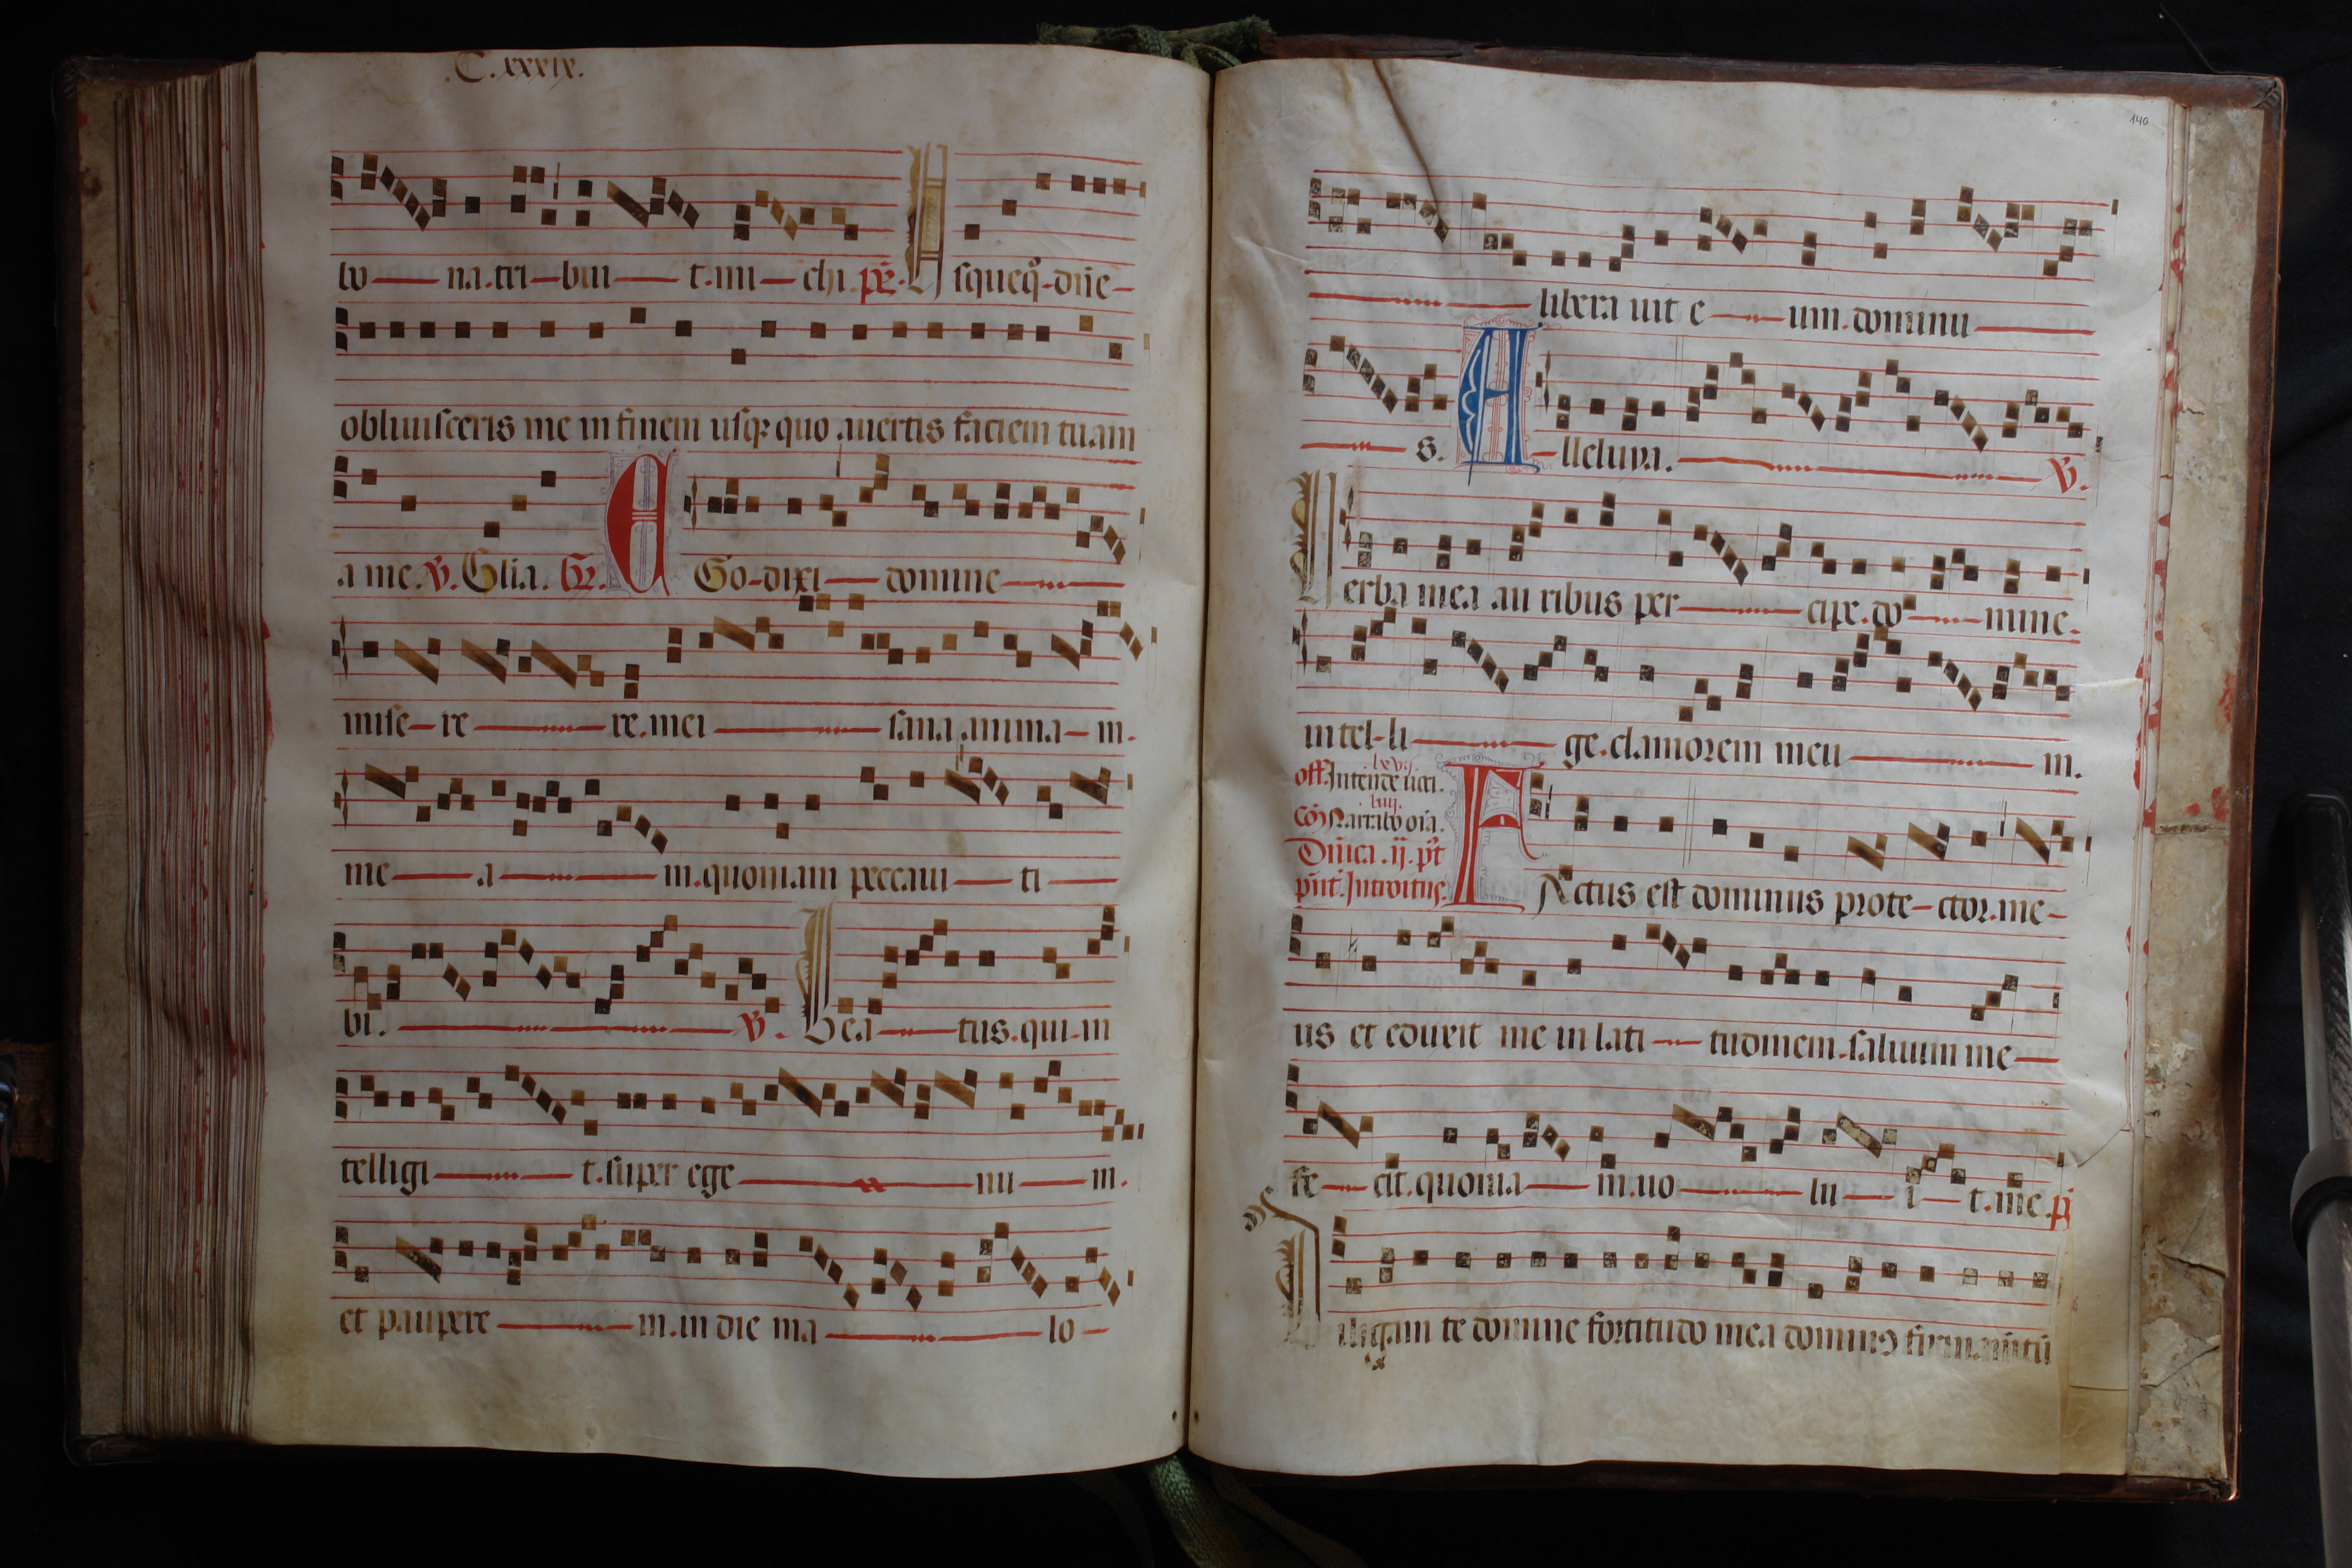 .C.xxxix.
bo na.tri bui t.mi chi.ps. Usquequo dne
obliuisceris me in finem usq quo auertis faciem tuam
a me. V. Glia. Gr. EGo dixi domine
mise re re.mei sana anima m.
me a m.quoniam peccaui ti
bi. V. Bea tus.qui in
telligi t.super ege nu m.
et paupere m.in die ma lo
140
libera uit e um.dominu
s. Alleluya. V.
Uerba mea au ribus per cipe.do mine.
intel li ge.clamorem meu m.
lxvij.
off. Intende uoci.
liiij.
Co Narrabo oia.
Dnica .ij. pt
pnt. Introitus. FActus est dominus prote ctor.me
us et eduxit me in lati tudinem.saluum me
fe cit.quonia m.uo lu i t.me.p
Diligam te domine fortitudo mea domin9 firmamtu